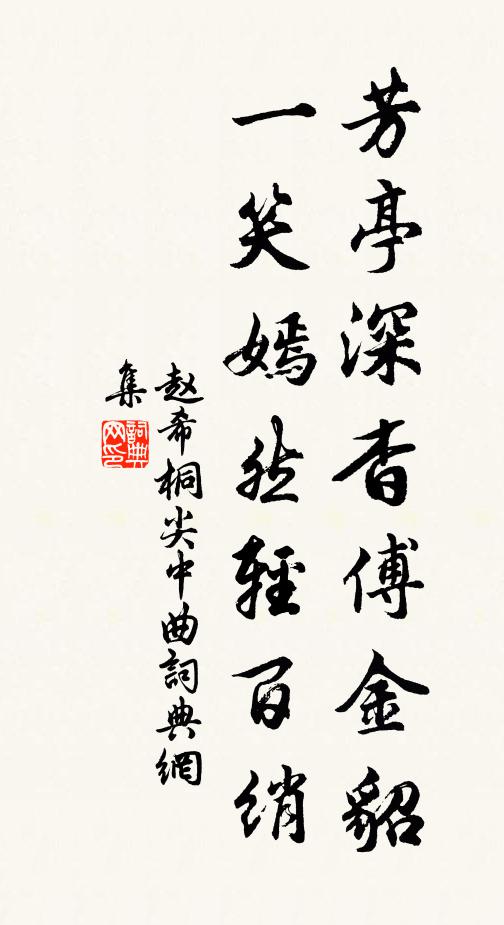 芳亭深杳傅金貂
一笑嫣然輕百綃
赵希桐尖中曲詞典網
集
詞典
网印